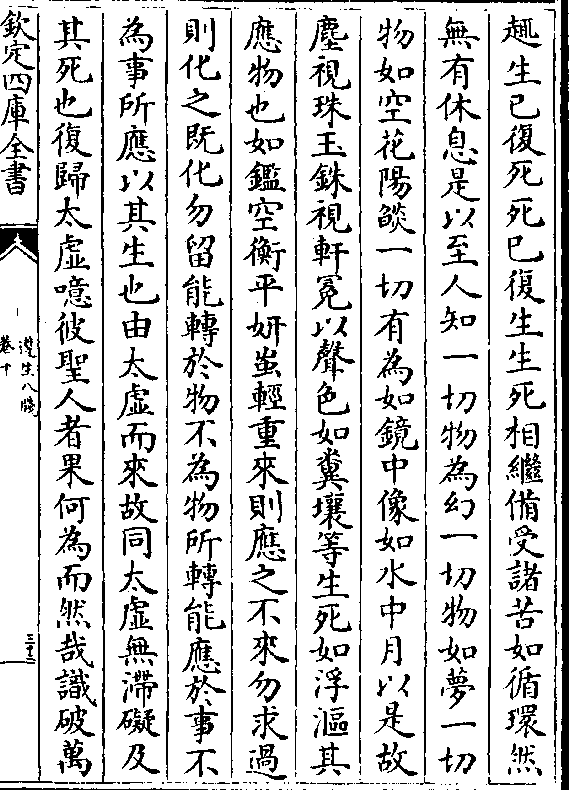 趣生已復死死已復生生死相繼備受諸苦如循環然
無有休息是以至人知一切物為幻一切物如夢一切
物如空花陽燄一切有為如鏡中像如水中月以是故
塵視珠玉銖視軒冕以聲色如糞壤等生死如浮漚其
應物也如鑑空衡平妍蚩輕重來則應之不來勿求過
則化之既化勿留能轉於物不為物所轉能應於事不
為事所應以其生也由太虛而來故同太虛無滯礙及
其死也復歸太虛噫彼聖人者果何為而然哉識破萬
欽定四庫全書
遵生八牋
卷十
三十三